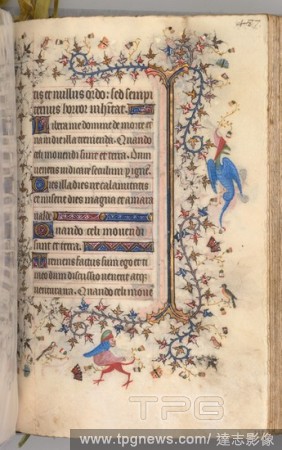 457
us et nullus ordo: sed sempi
ternus horror inhitat.
Libera me domine de morte et
na in die illa tremenda. Quando
celi movendi sunt et terra. Dum
veneris iudicare seculum p igne.
Dies illa dies ire calamitatis
et miserie dies magna et amara
valde
Quando celi movendi
sunt et terra.
Tremens factus sum ego et ti
meo dum discussio venerit atq
ventura ira. Quando celi move
TPG
www.tpgnews.com/達志影像